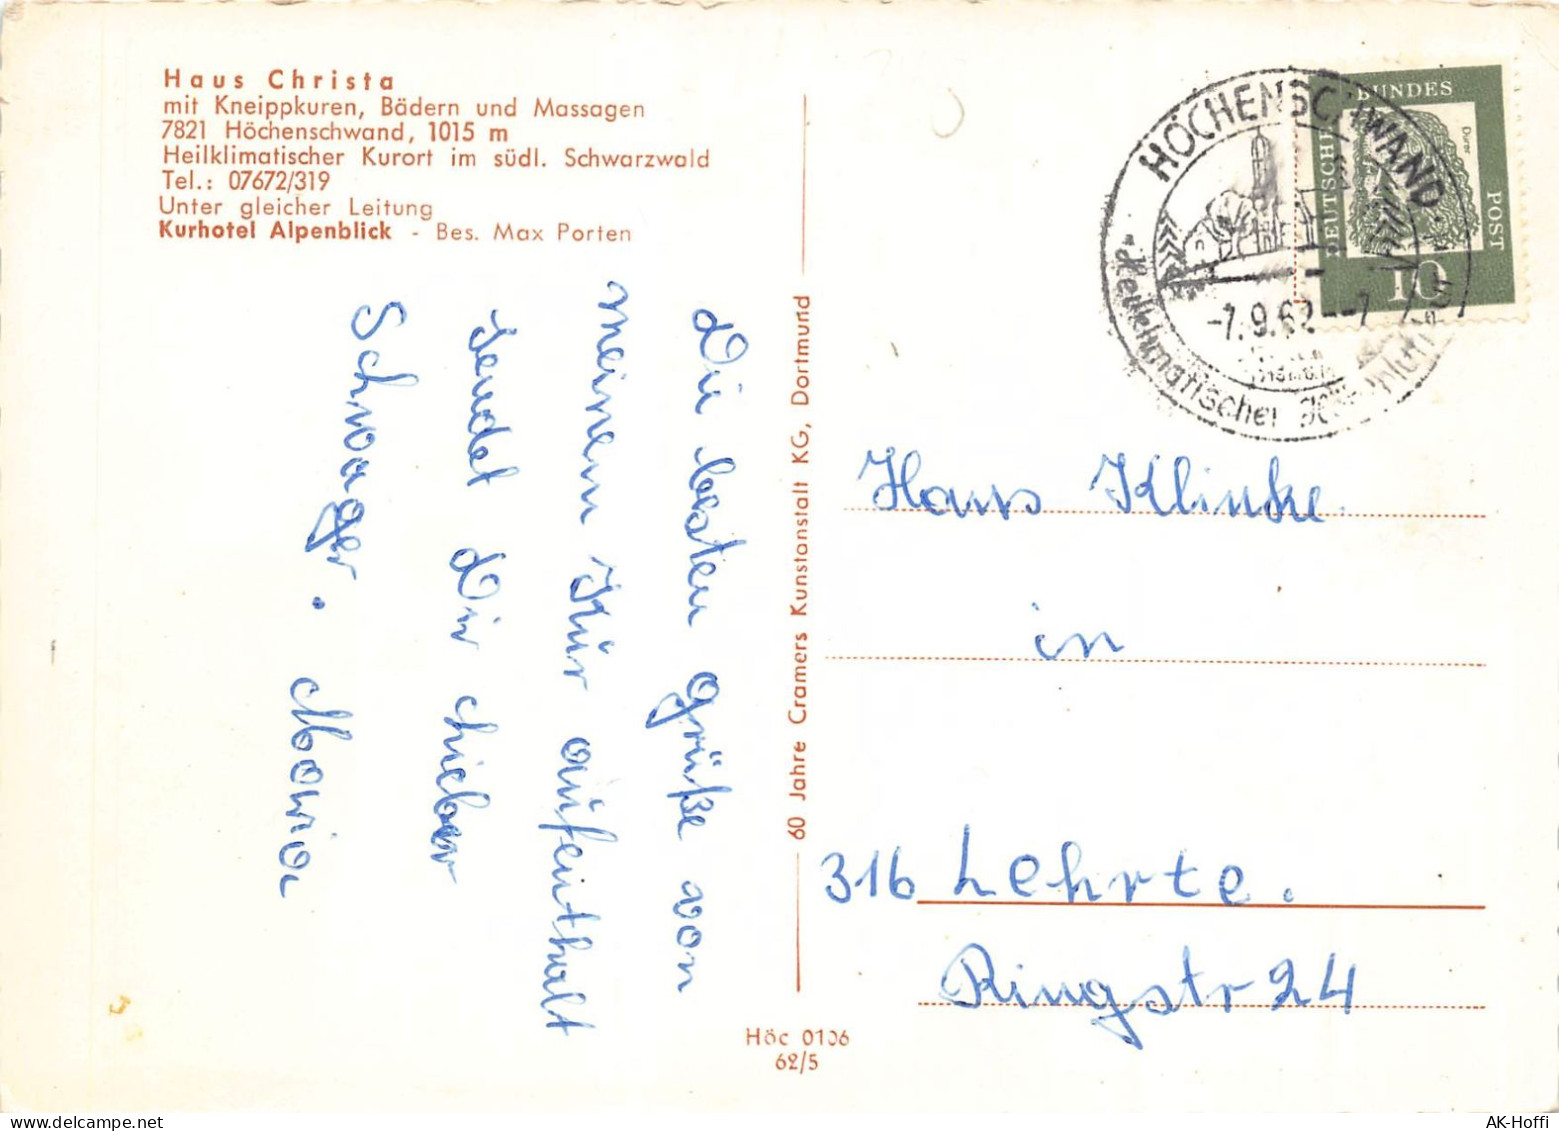 Haus Christa
mit Kneippkuren, Bädern und Massagen
7821 Höchenschwand, 1015 m
Heilklimatischer Kurort im südl. Schwarzwald
Tel.: 07672/319
Unter gleicher Leitung
Kurhotel Alpenblick - Bes. Max Porten
Die besten Grüße von
meinem Kur aufenthalt
sendet Dir lieber
Schwager. Maria
60 Jahre Cramers Kunstanstalt KG, Dortmund
Höc 0106
62/5
HÖCHENSCHWAND
-7.9.62
Heilklimatischer
DEUTSCHE
BUNDES
POST
Dürer
10
Hans Klinke
in
316 Lehrte.
Ringstr 24
AK-Hoffi